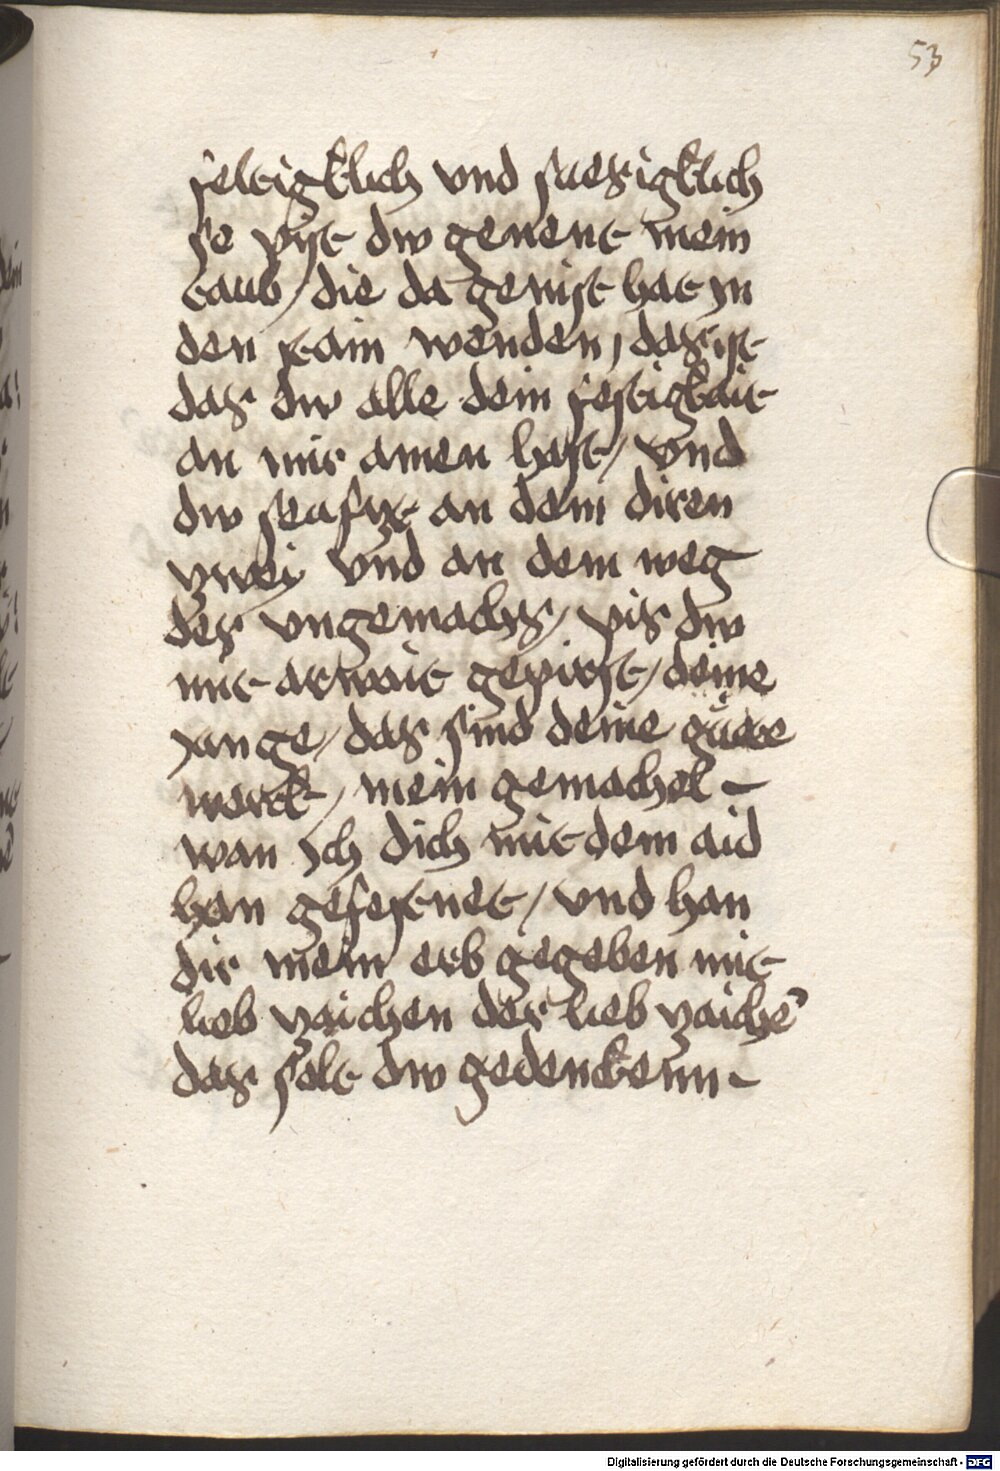 53
seleigklich vnd suesigklich
se pist dw genent mein
taub / die da genist hat yn
den stain wenden / das ist
das dw alle dein festigkait
an mir amen hast / vnd
dw seufzt an dem diren
zwei vnd an dem weg
des vngemachs / pis dw
mit arwait gepirst / deine
Junge / das sind deine guete
werck / mein gemachel -
wan Jch dich mit dem aid
han gefestnet / vnd han
dir mein erb gegeben mit
lieb zaichen der lieb zaichē
das solt dw gedenckenn -
Digitalisierung gefördert durch die Deutsche Forschungsgemeinschaft - DFG